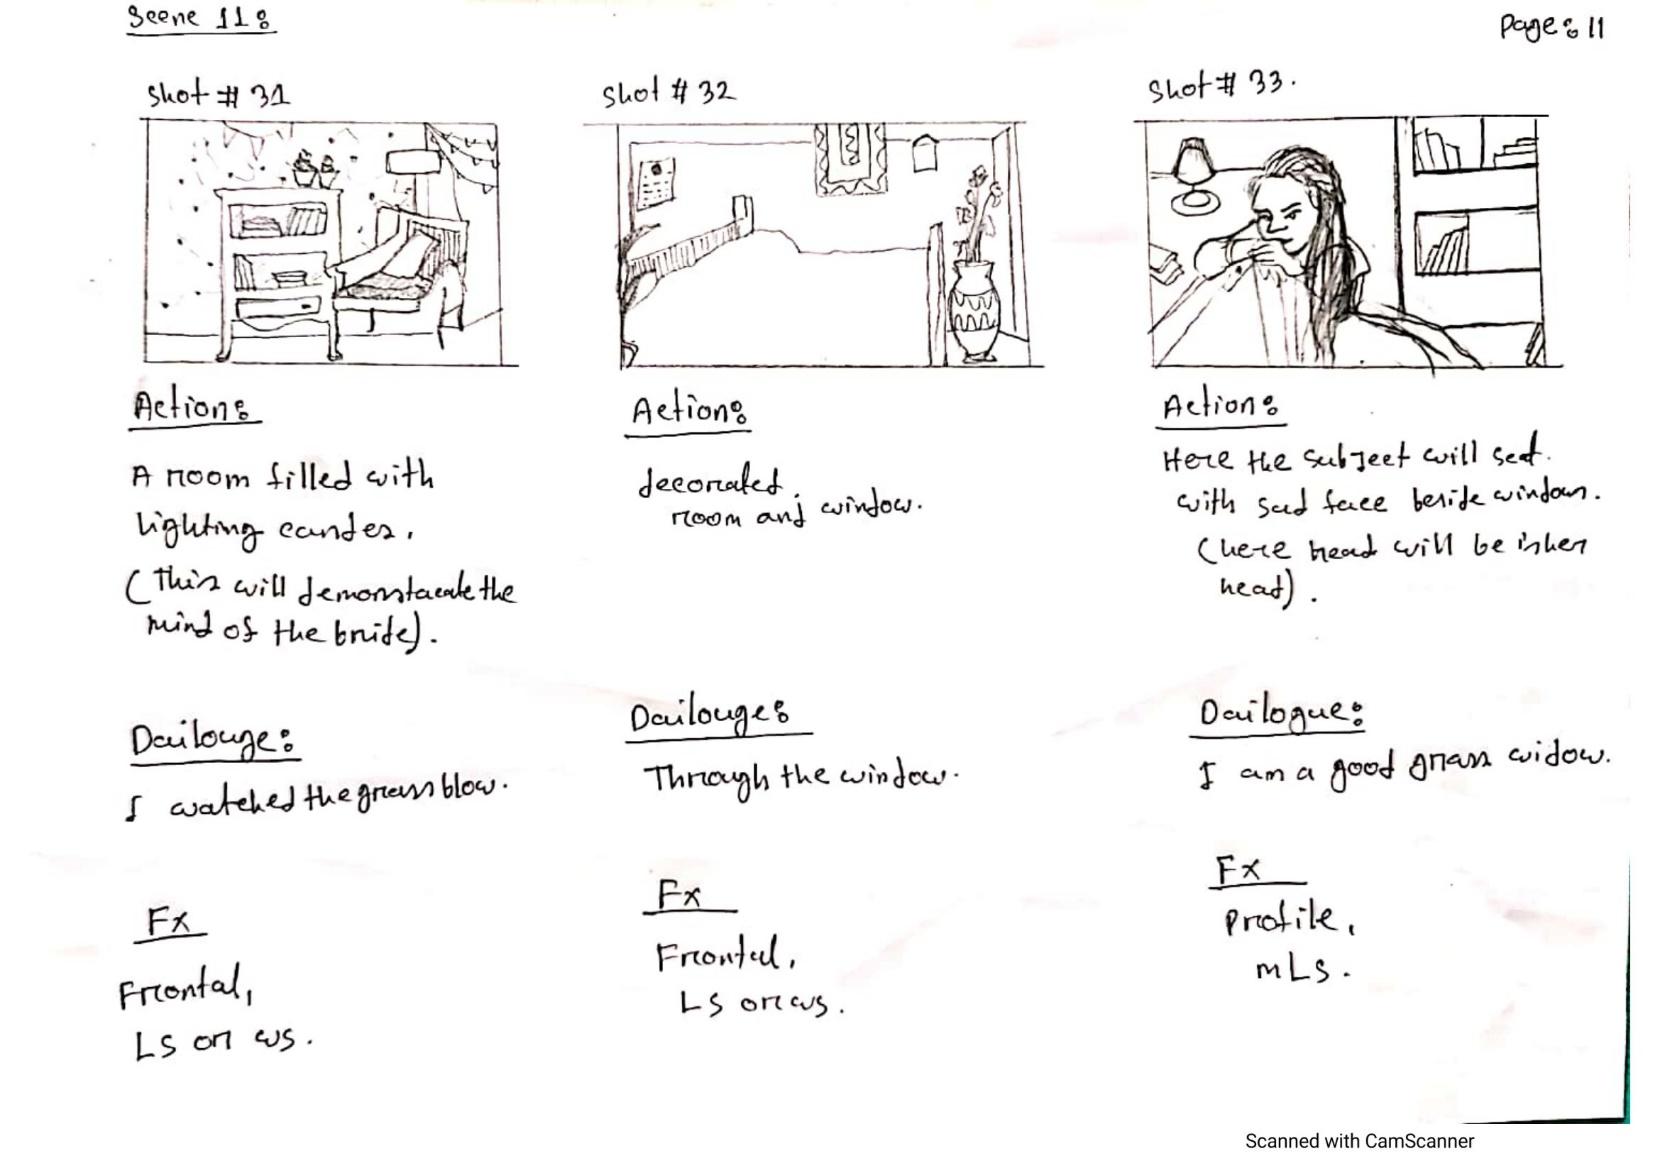 Scene 11:
Page: 11
Shot # 31
Action:
A room filled with
lighting candes.
(This will demonstacate the
mind of the bride).
Dailouge:
I watched the grass blow.
Fx
Frontal,
LS or ws.
Shot # 32
Action:
decorated
room and window.
Dailouge:
Through the window.
Fx
Frontal,
LS or ws.
Shot # 33.
Action:
Here the subject will seat
with sad face beside window.
(here head will be in her
head).
Dailogue:
I am a good grass widow.
Fx
Profile,
mLs.
Scanned with CamScanner